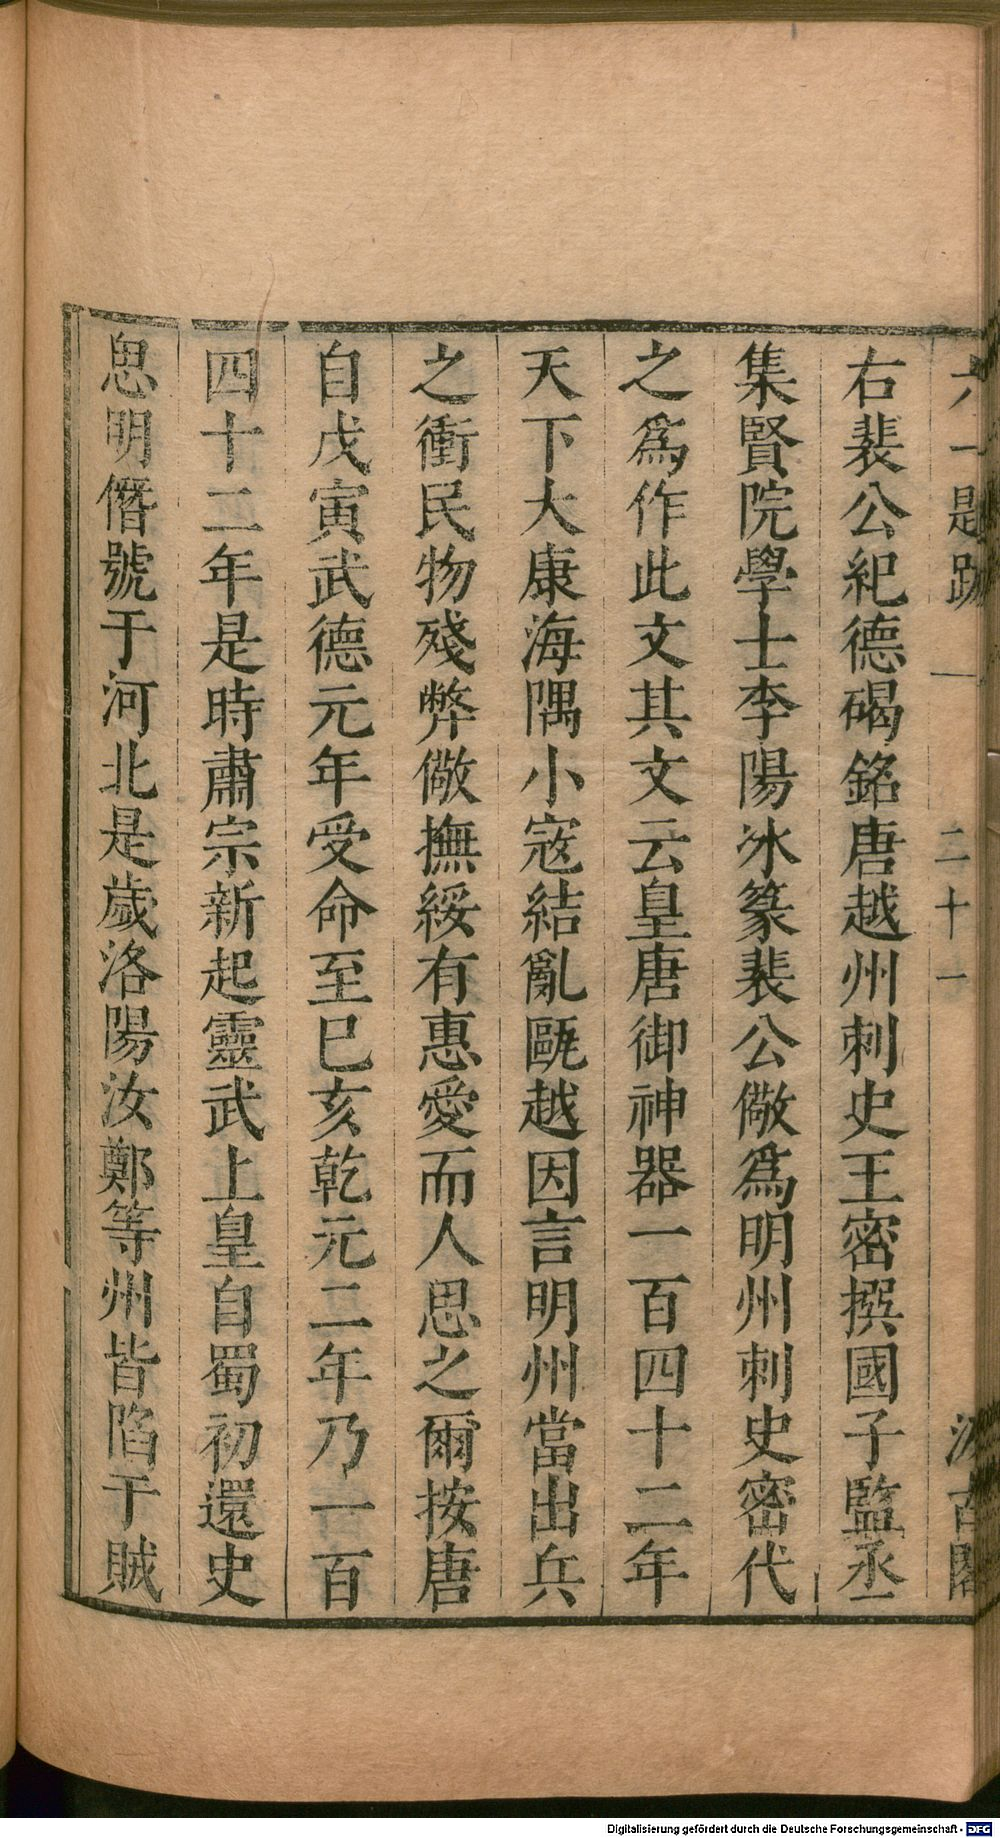 六一題跋 二十一 汲古閣
右裴公紀德碣銘唐越州刺史王密撰國子監丞
集賢院學士李陽冰篆裴公儆爲明州刺史密代
之爲作此文其文云皇唐御神器一百四十二年
天下大康海隅小寇結亂甌越因言明州當出兵
之衝民物殘弊儆撫綏有惠愛而人思之爾按唐
自戊寅武德元年受命至巳亥乾元二年乃一百
四十二年是時肅宗新起靈武上皇自蜀初還史
思明僭號于河北是歲洛陽汝鄭等州皆陷于賊
Digitalisierung gefördert durch die Deutsche Forschungsgemeinschaft - DFG